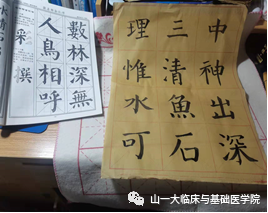 數林深無
人鳥相呼
采
中神出深
三清魚石
理惟水可
山一大临床与基础医学院